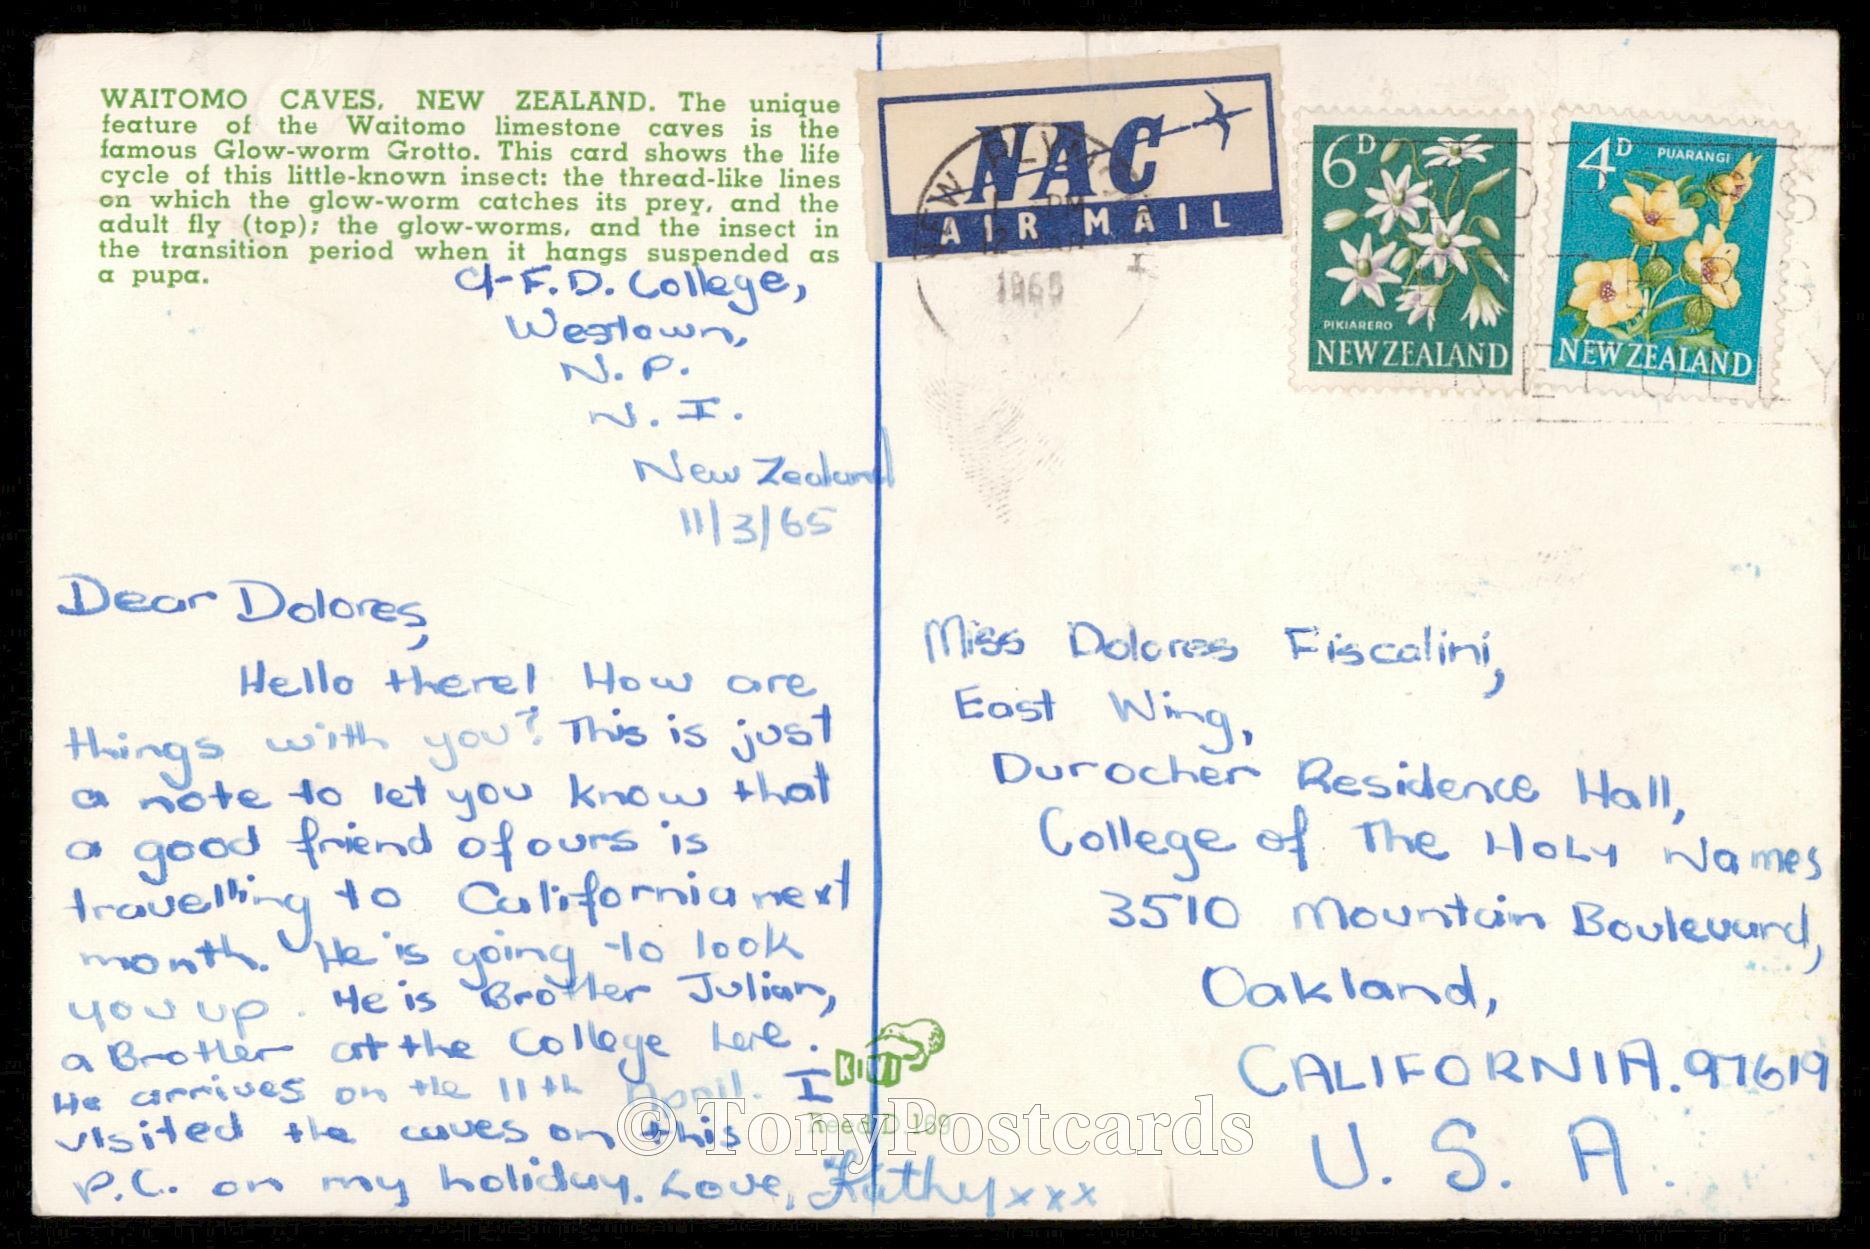 WAITOMO CAVES, NEW ZEALAND. The unique
feature of the Waitomo limestone caves is the
famous Glow-worm Grotto. This card shows the life
cycle of this little-known insect: the thread-like lines
on which the glow-worm catches its prey, and the
adult fly (top); the glow-worms, and the insect in
the transition period when it hangs suspended as
a pupa.
C/- F.D. College,
Westown,
N. P.
N. I.
New Zealand
11/3/65
Dear Dolores,
Hello there! How are
things with you? This is just
a note to let you know that
a good friend of ours is
travelling to California next
month. He is going to look
you up. He is Brother Julian,
a Brother at the College here.
He arrives on the 11th April. I
visited the caves on this
P.C. on my holiday. Love, Kathy xxx
KIWI
Reed D 169
NAC
AIR MAIL
NEW PLYMOUTH
1965
6D
PIKIARERO
NEW ZEALAND
4D
PUARANGI
NEW ZEALAND
Miss Dolores Fiscalini,
East Wing,
Durocher Residence Hall,
College of The HOLY Names
3510 Mountain Boulevard,
Oakland,
CALIFORNIA. 97619
U. S. A.
© TonyPostcards